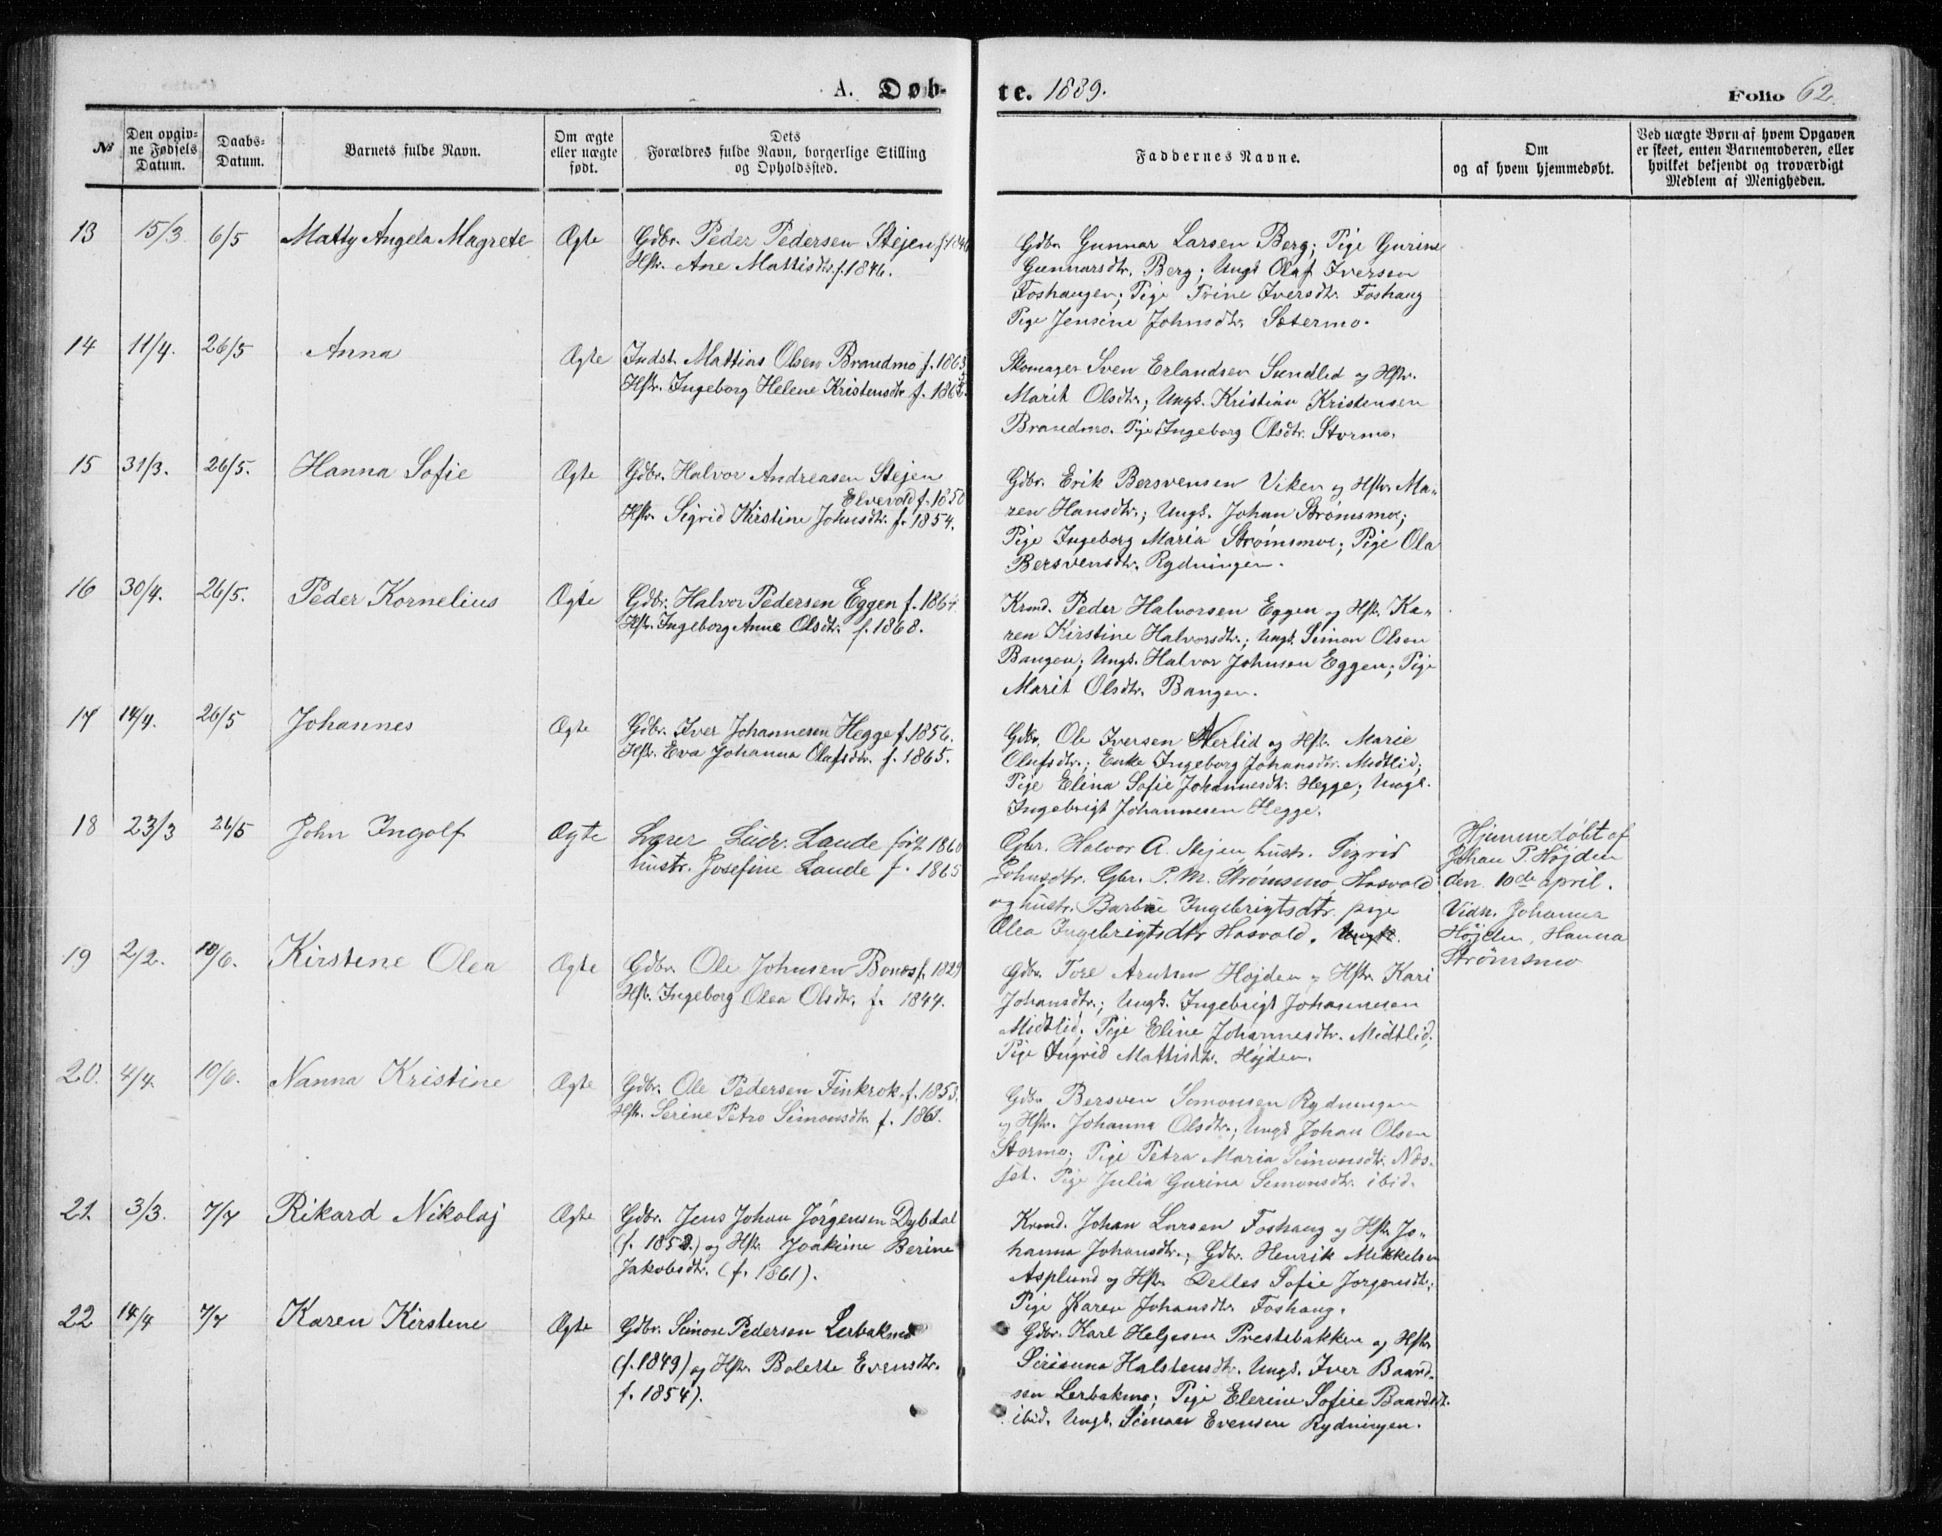 A. Døbte. 1889. Folio 62.
№
Den opgivne Fødsels Datum.
Daabs-Datum.
Barnets fulde Navn.
Om ægte eller uægte født.
Dets Forældres fulde Navn, borgerlige Stilling og Opholdssted.
Faddernes Navne.
Om og af hvem hjemmedøbt.
Ved uægte Børn af hvem Opgaven er skeet, enten Barnemoderen, eller hvilket bekjendt og troværdigt Medlem af Menigheden.
13 15/3 6/5 Matty Angela Magrete Ægte
Gdbr. Peder Pedersen Stejen f. 1846
Hstr. Ane Mattisdtr. f. 1846.
Gdbr. Gunnar Larsen Berg; Pige Gurine
Gunnarsdtr. Berg; Ungk Olaf Iversen
Foshaugen; Pige Trine Iversdtr. Foshaug
Pige Jensine Johnsdtr. Sætermo.
14 11/4. 26/5 Anna Ægte
Indst. Mattias Olsen Brandmo f. 1863
Hstr. Ingeborg Helene Kristensdtr f. 186
Skomager Sven Erlandsen Sundlid og Hstr.
Marit Olsdtr.; Ungk. Kristian Kristensen
Brandmo. Pige Ingeborg Olsdtr. Stormo.
15 31/3. 26/5. Hanna Sofie Ægte
Gdbr. Halvor Andreasen Stejen
Elvevold f. 1850
Hstr. Sigrid Kirstine Johnsdtr. f. 1854.
Gdbr. Erik Bersvensen Viken og Hstr. Ma-
ren Hansdtr.; Ungk. Johan Strømsmo;
Pige Ingeborg Maria Strømsmoe; Pige Ola
Bersvensdtr. Rydningen.
16 30/4. 26/5. Peder Kornelius Ægte
Gdbr. Halvor Pedersen Eggen f. 1864.
Hstr. Ingeborg Anne Olsdtr. f. 1868.
Krmd. Peder Halvorsen Eggen og Hstr. Ka-
ren Kirstine Halvorsdtr.; Ungk. Simon Olsen
Bangen; Ungk. Halvor Johnsen Eggen; Pige
Marit Olsdtr. Bangen.
17 14/4. 26/5 Johannes Ægte
Gdbr. Iver Johannesen Hegge f. 1856.
Hstr. Eva Johanna Olafsdtr. f. 1865.
Gdbr. Ole Iversen Nerlid og Hstr. Marie
Olafsdtr.; Enke Ingeborg Johansdtr. Midtlid;
Pige Elina Sofie Johannesdtr. Hegge; Ungk.
Ingebrigt Johannesen Hegge.
18 23/3 26/5 John Ingolf Ægte
Lærer Ludv. Lande født 1860
hustr. Josefine Lande f. 1865
Gbr. Halvor A. Stejen, hustr. Sigrid
Johnsdtr. Gbr. P. M. Strømsmo, Hosvold
og hustr. Barbue Ingebrigtsdtr. pige
Olea Ingebrigtsdtr Hosvold.
Hjemmedøbt af
Johan P. Højden
den 10de april.
Vidn. Johanna
Højden, Hanna
Strømsmo
19 2/2. 10/6. Kirstine Olea Ægte
Gdbr. Ole Johnsen Bones f. 1829
Hstr. Ingeborg Olea Olsdtr. f. 1844.
Gdbr. Tore Arntsen Højden og Hstr. Kari
Johansdtr.; Ungk. Ingebrigt Johannesen
Midtlid; Pige Eline Johannesdtr. Midtlid;
Pige Ingrid Mattisdtr. Højden.
20. 4/4. 10/6. Nanna Kristine Ægte
Gdbr. Ole Pedersen Finkrok. f. 1853.
Hstr. Serine Petro Simonsdtr f. 1861.
Gdbr Bersven Simonsen Rydningen
og Hstr. Johanna Olsdtr.; Ungk Johan Olsen
Stormo; Pige Petra Maria Simonsdtr. Næs-
set. Pige Julia Gurina Simonsdtr. ibid.
21. 3/3. 7/7 Rikard Nikolaj Ægte
Gdbr. Jens Johan Jørgensen Dybdal
(f. 1858.) og Hstr Joakime Berine
Jakobsdtr. (f. 1861).
Krmd. Johan Larsen Foshaug og Hstr Jo-
hanna Johansdtr.; Gdbr. Henrik Mikkelsen
Asplund og Hstr. Delles Sofie Jørgensdtr.;
Pige Karen Johansdtr Foshaug.
22 14/4 7/7 Karen Kirstine Ægte
Gdbr. Simon Pedersen Lerbakmo
(f. 1849) og Hstr. Bolette Evensdtr.
f. 1854).
Gdbr. Karl Helgesen Prestebakken og Hstr
Sirianna Halstensdtr. Ungk. Iver Baard-
sen Lerbakmo; Pige Elerine Sofie Baardsdt.
ibid. Ungk. Simon Evensen Rydningen.